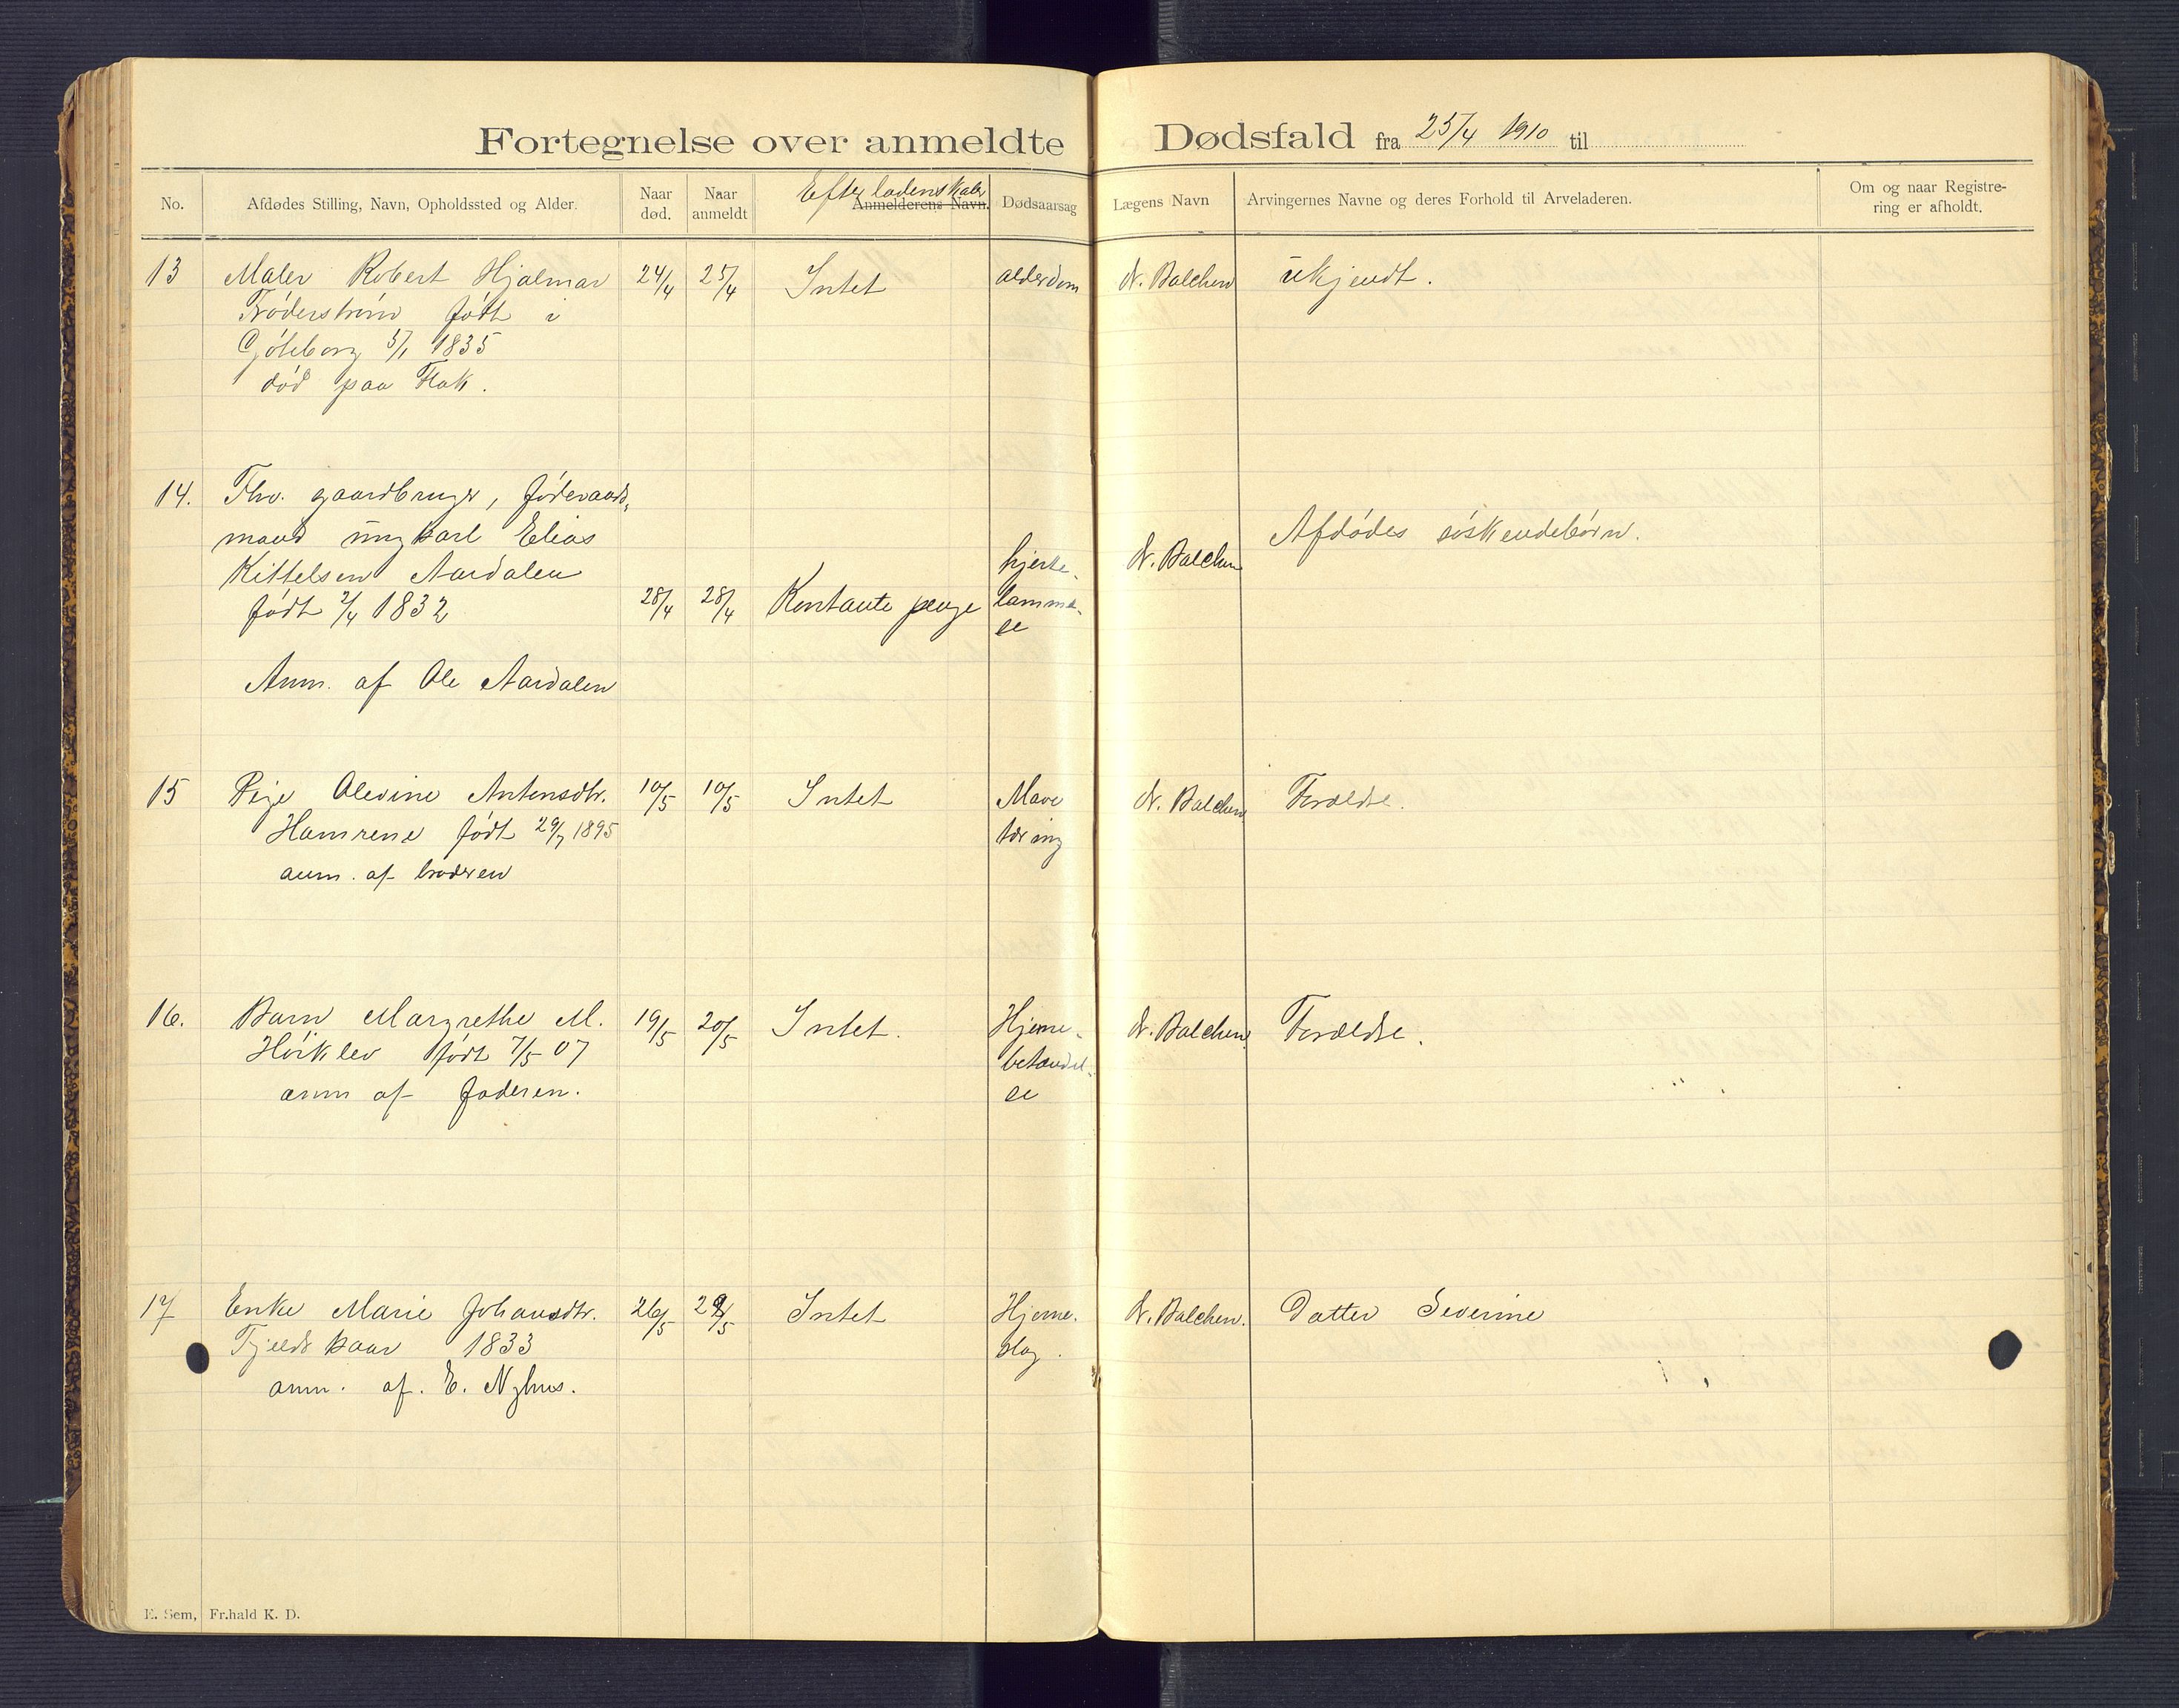 Fortegnelse over anmeldte Dødsfald fra 25/4 1910 til
No. Afdødes Stilling, Navn, Opholdssted og Alder. Naar død. Naar anmeldt Efterladenskaber Anmelderens Navn. Dødsaarsag Lægens Navn Arvingernes Navne og deres Forhold til Arveladeren. Om og naar Registrering er afholdt.
13 Maler Robert Hjalmar 24/4 25/4 Intet alderdom N. Balchen ukjendt.
født i
Gøteborg 5/1 1835
død paa Flak.
14. Fhv. gaardbruger, føderaads-
mand ungkarl Elias Afdødes søskendebørn.
Kittelsen Aardalen hjerte- N. Balchen
født 2/4 1832 28/4 28/4 Kontante penge lammel-
se
Anm. af Ole Aardalen
15 Pige Olevine Antonsdtr. 10/5 10/5 Intet Mave N. Balchen Forældre.
Hamrene født 29/7 1895 tæring
anm. af broderen
16. Barn Margrethe M. 19/5 20/5 Intet. Hjerne- N. Balchen Forældre.
Høiklev født 7/5 07 betændel-
anm af faderen. se
17 Enke Marie Johansdtr. 26/5 28/5 Intet Hjerne- N. Balchen. Datter Severine
Fjeldskaar 1833 slag.
anm. af. E. Nyhus.
E. Sem, Fr.hald K. D.